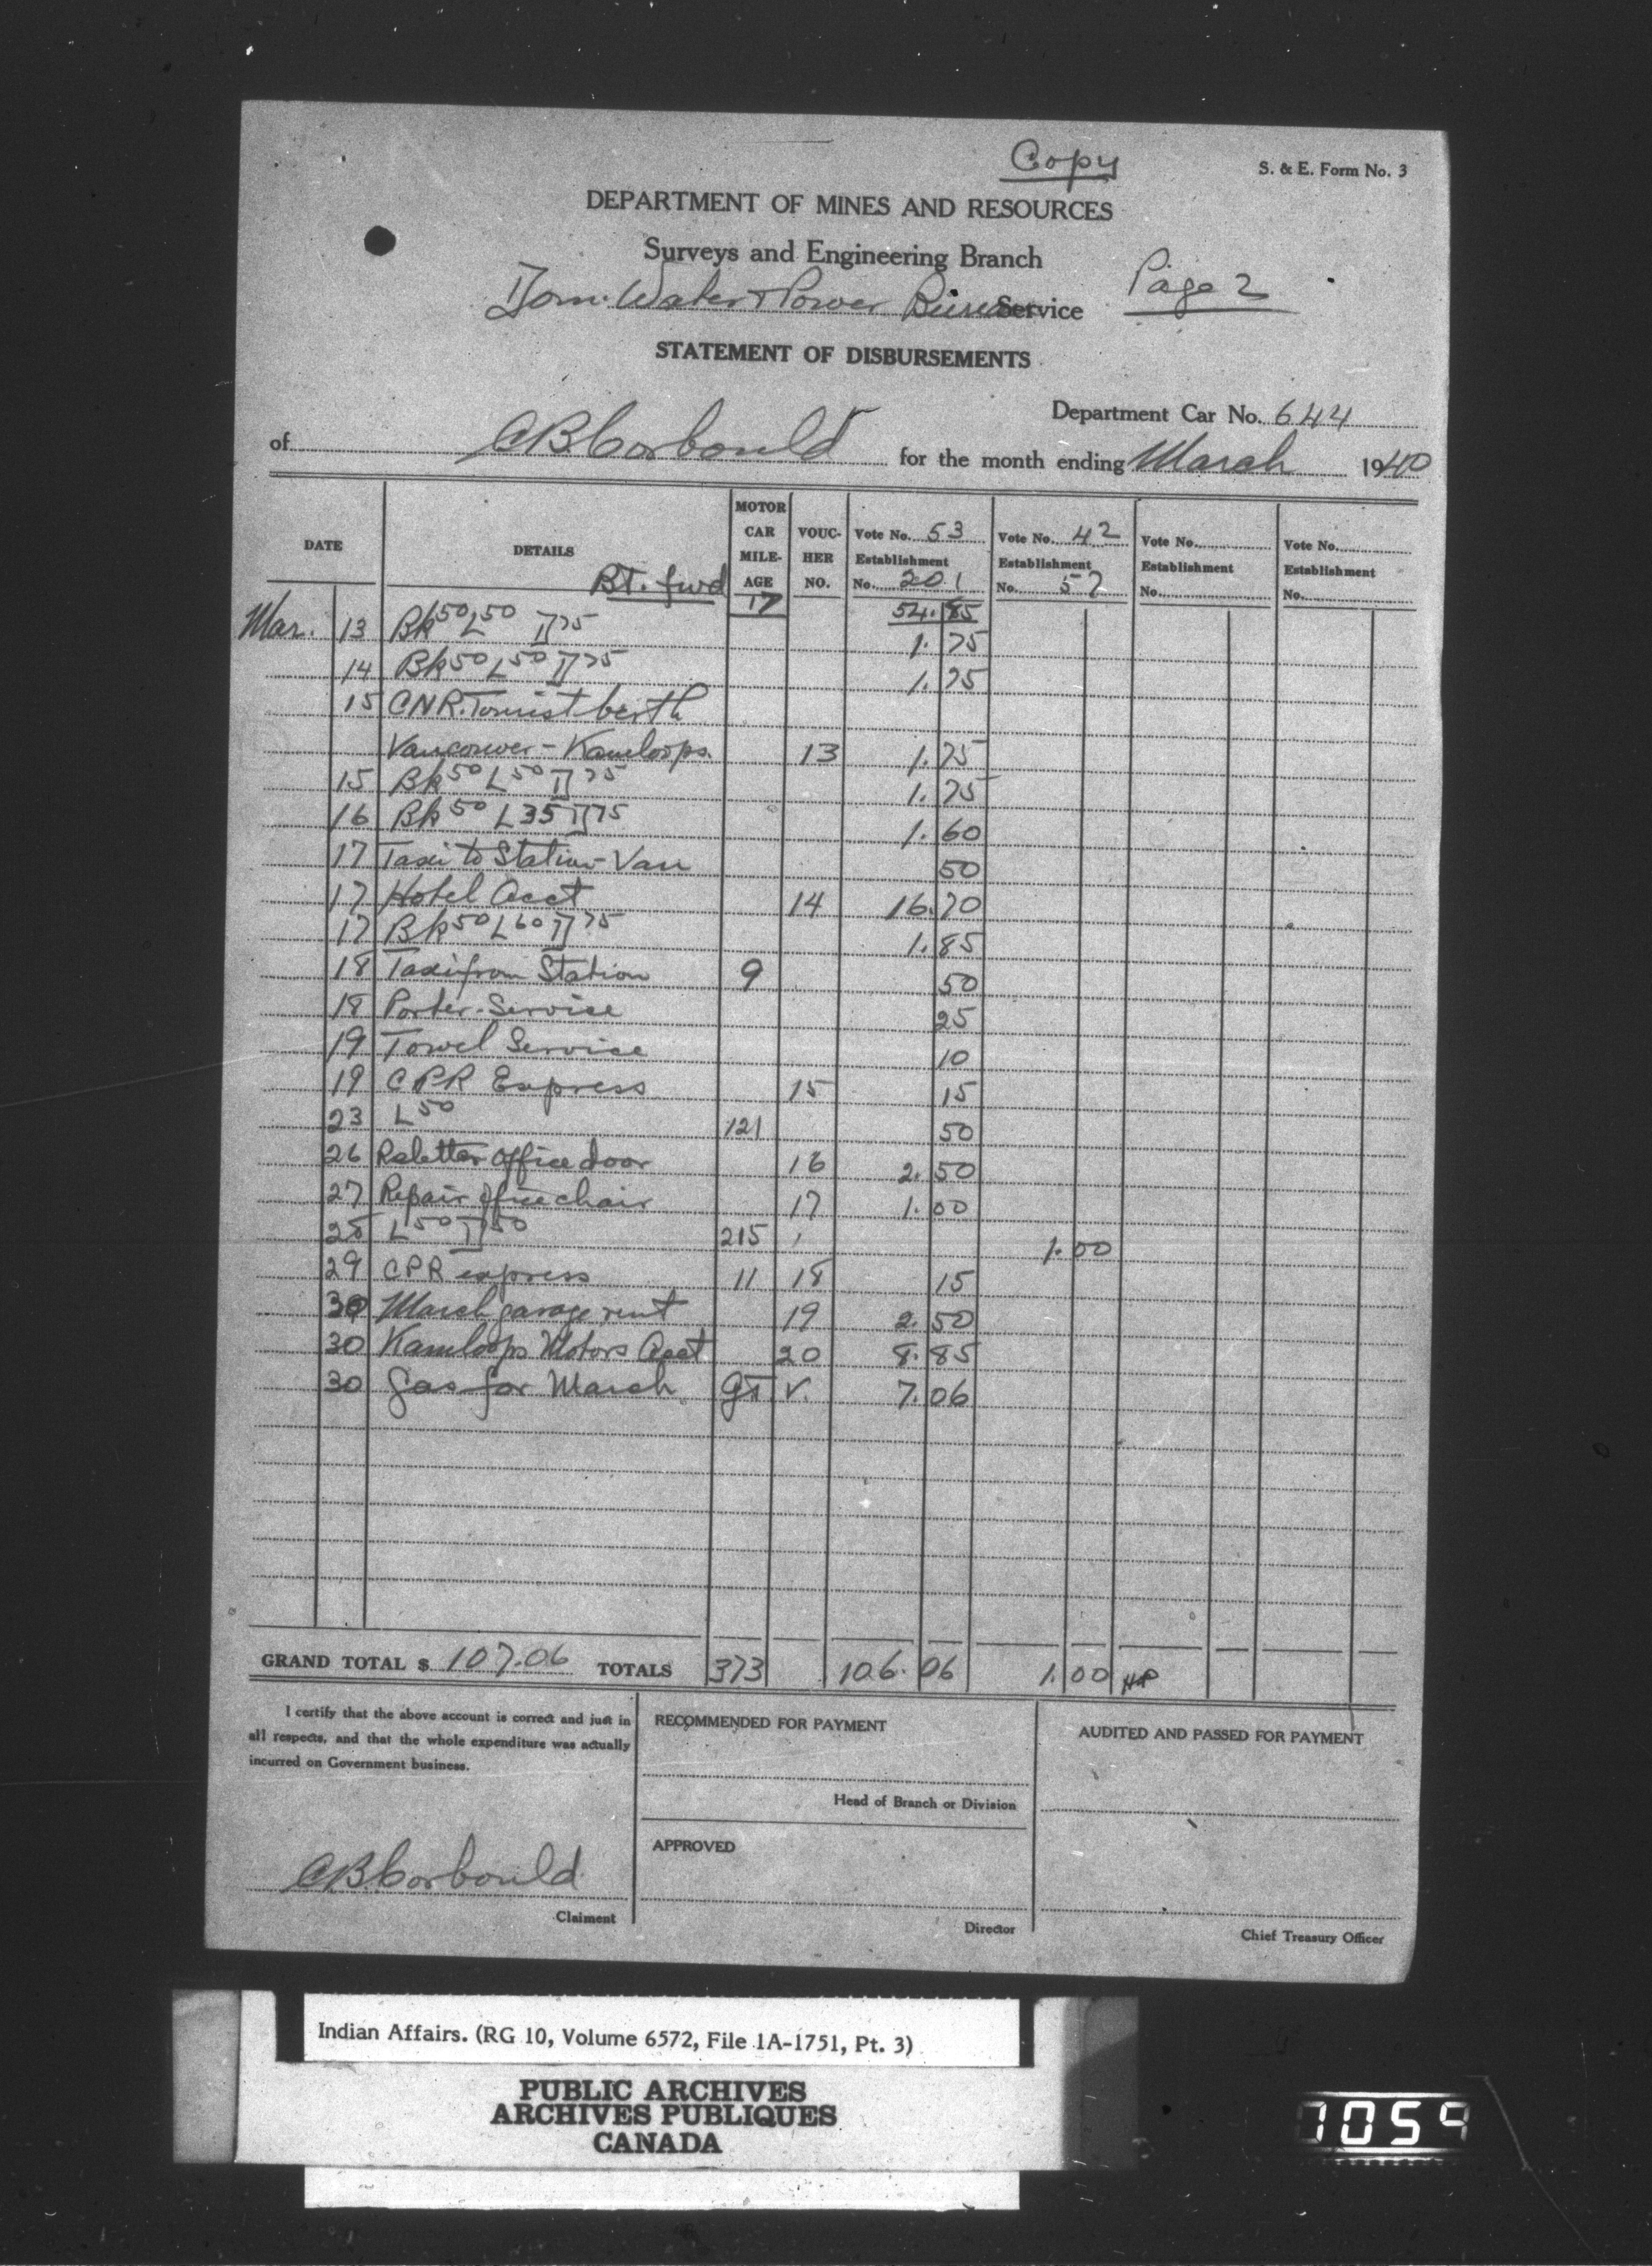 Copy
S. & E. Form No. 3
DEPARTMENT OF MINES AND RESOURCES
Surveys and Engineering Branch
Dom. Water & Power Bureau Service
Page 2
STATEMENT OF DISBURSEMENTS
Department Car No. 644
of C B Corbould for the month ending March 1940
DATE DETAILS MOTOR CAR MILE-AGE VOUC-HER NO. Vote No. 53 Establishment No. 201 Vote No. 42 Establishment No. 57 Vote No. Establishment No. Vote No. Establishment No.
Bt. fwd 17 54.85
Mar. 13 Bk 50 L 50 D 75 1.75
14 Bk 50 L 50 D 75 1.75
15 CNR. Tourist berth
Vancouver - Kamloops. 13 1.75
15 Bk 50 L 50 D 75 1.75
16 Bk 50 L 35 D 75 1.60
17 Taxi to Station - Van 50
17 Hotel Acct 14 16.70
17 Bk 50 L 60 D 75 1.85
18 Taxi from Station 9 50
18 Porter. Service 25
19 Towel Service 10
19 CPR Express 15 15
23 L 50 121 50
26 Reletter office door 16 2.50
27 Repair office chair 17 1.00
28 L 50 D 50 215 1.00
29 CPR express 11 18 15
30 March garage rent 19 2.50
30 Kamloops Motors Acct 20 8.85
30 Gas for March GT V. 7.06
GRAND TOTAL $ 107.06 TOTALS 373 106.06 1.00
I certify that the above account is correct and just in
all respects, and that the whole expenditure was actually
incurred on Government business.
C B Corbould
Claiment
RECOMMENDED FOR PAYMENT
Head of Branch or Division
APPROVED
Director
AUDITED AND PASSED FOR PAYMENT
Chief Treasury Officer
Indian Affairs. (RG 10, Volume 6572, File 1A-1751, Pt. 3)
PUBLIC ARCHIVES
ARCHIVES PUBLIQUES
CANADA
1059